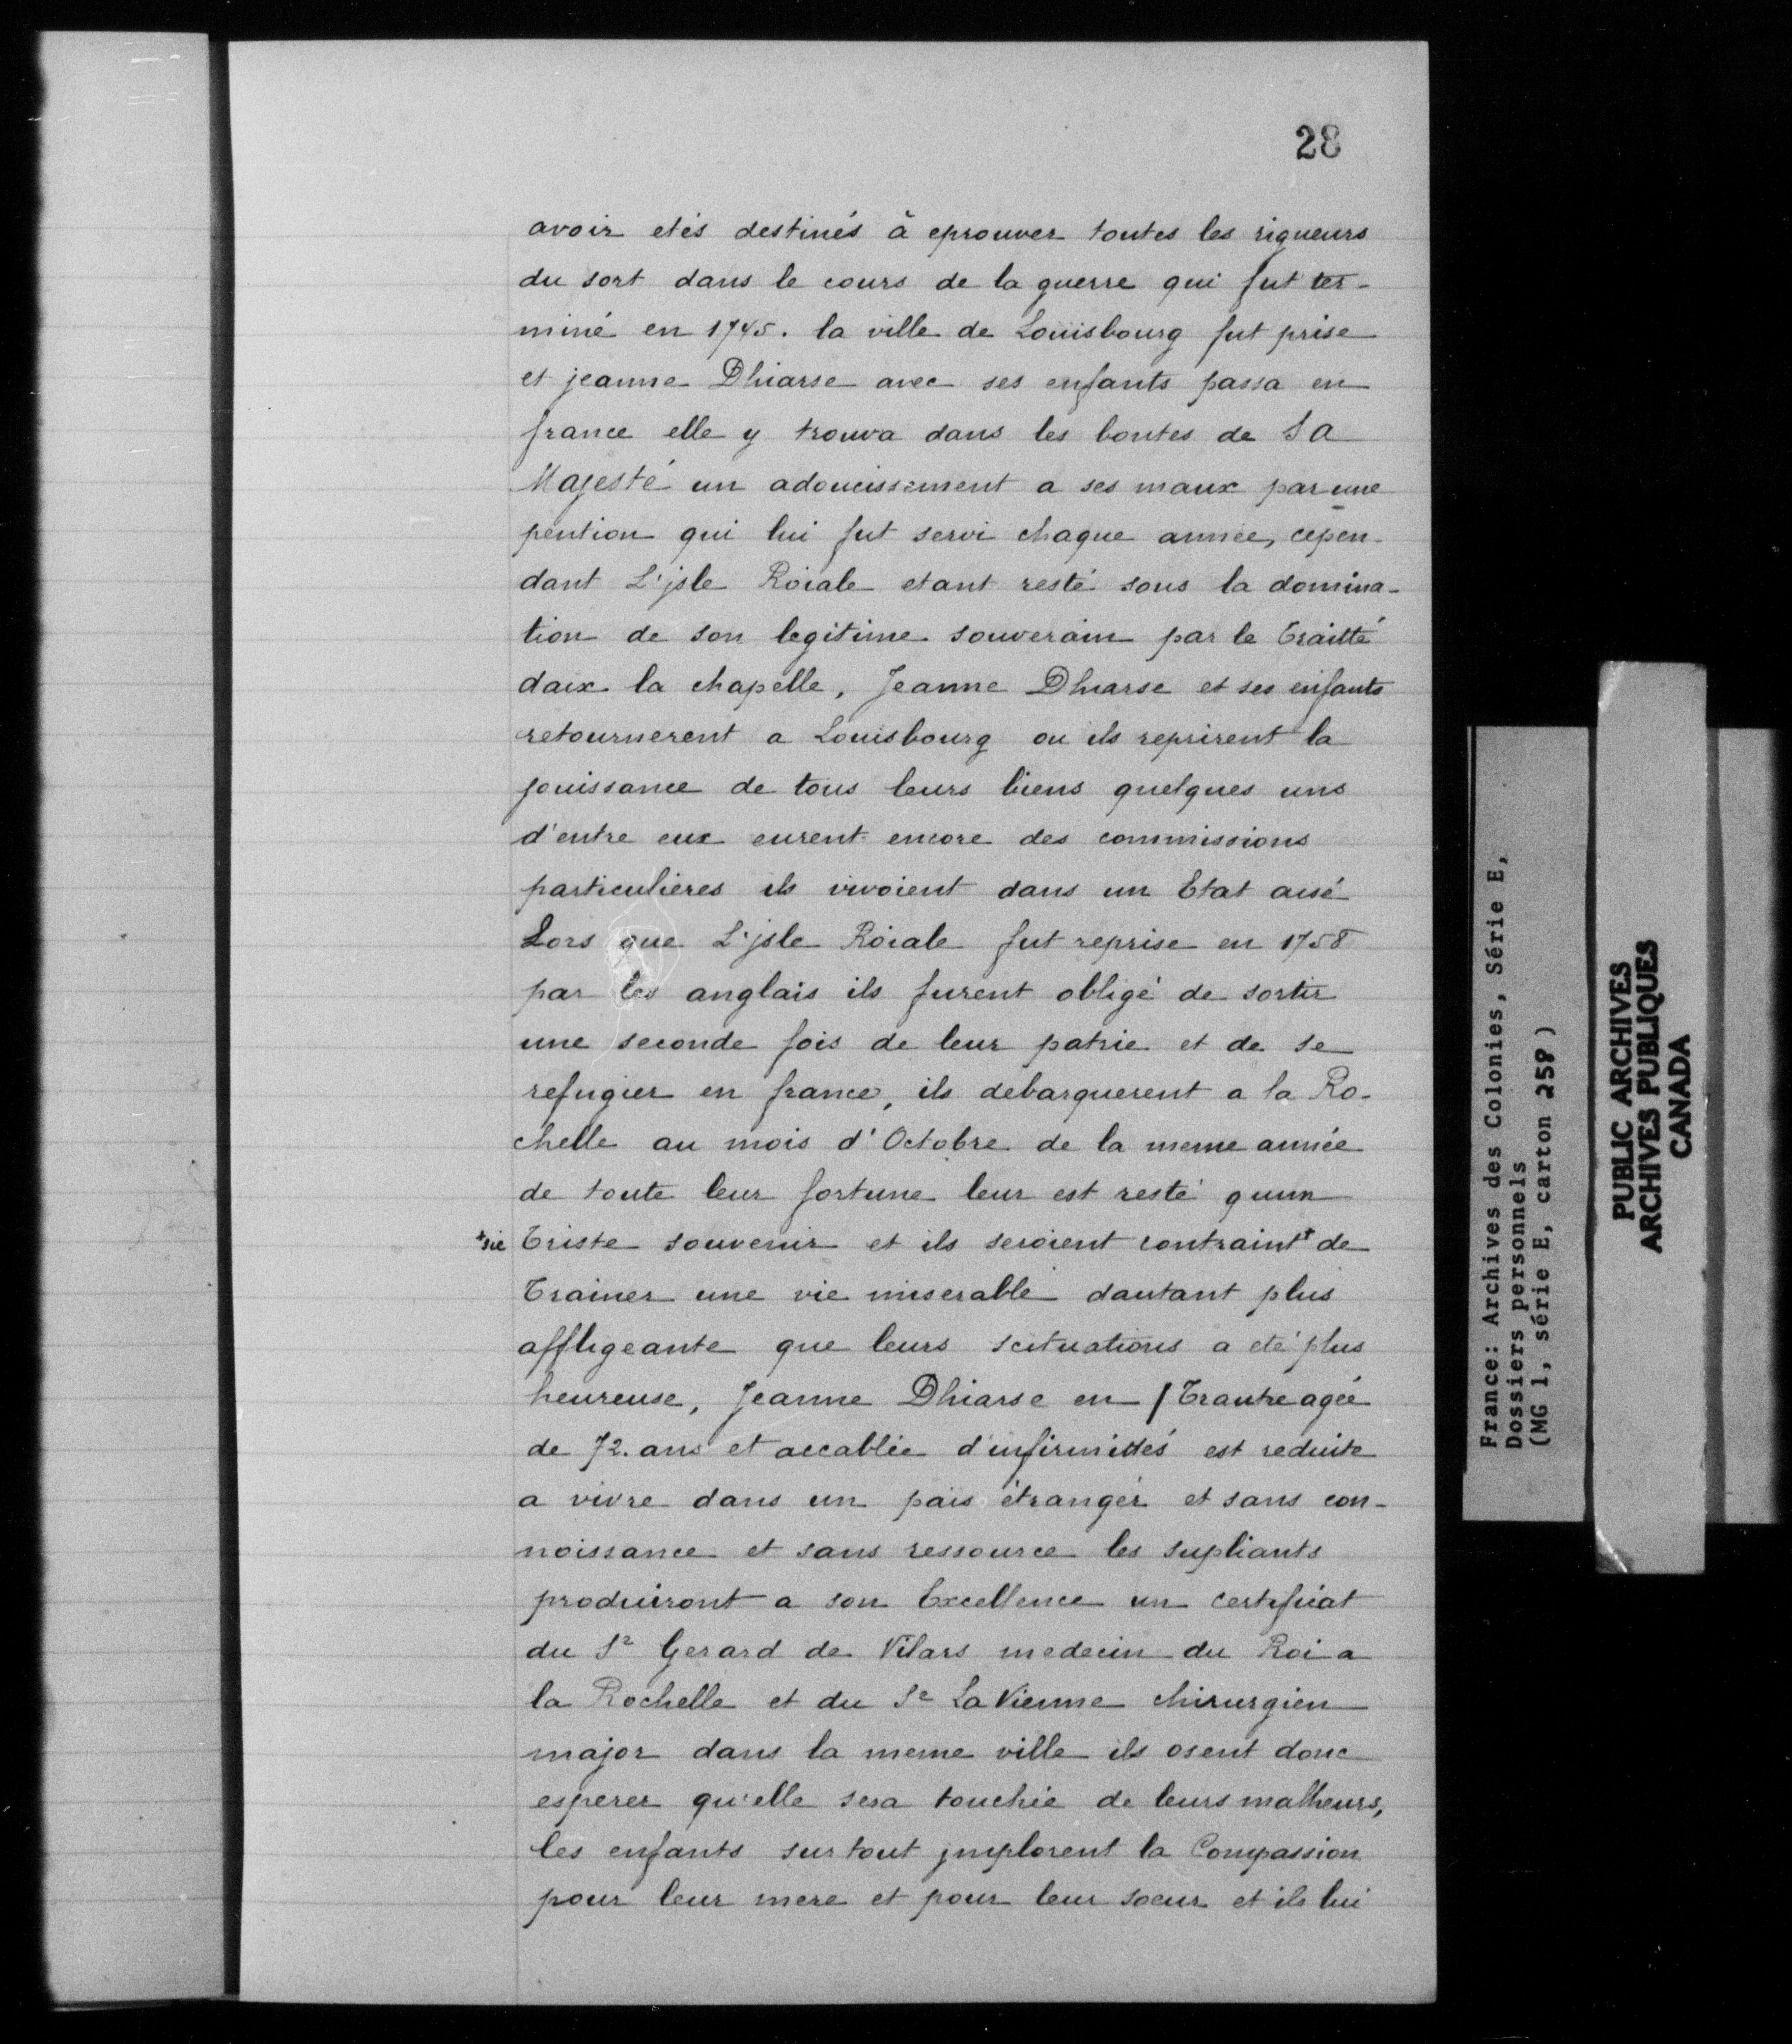 28
avoir etés destinés à eprouver toutes les rigueurs
du sort dans le cours de la guerre qui fut ter-
miné en 1745. la ville de Louisbourg fut prise
et jeanne Dhiarse avec ses enfants passa en
france elle y trouva dans les bontes de Sa
Majesté un adoucissement a ses maux par une
pention qui lui fut servi chaque année, cepen-
dant L'jsle Roiale etant resté sous la domina-
tion de son legitime souverain par le traitté
daix la chapelle, Jeanne Dhiarse et ses enfants
retournerent a Louisbourg ou ils reprirent la
jouissance de tous leurs biens quelques uns
d'entre eux eurent encore des commissions
particulieres ils vivoient dans un Etat aisé
Lors que L'jsle Roiale fut reprise en 1758
par les anglais ils furent obligé de sortir
une seconde fois de leur patrie et de se
refugier en france, ils debarquerent a la Ro-
chelle au mois d'Octobre de la meme année
de toute leur fortune leur est resté quun
+sic triste souvenir et ils seroient contraint+ de
trainer une vie miserable dautant plus
affligeante que leurs scituations a eté plus
heureuse, Jeanne Dhiarse en / trautre agée
de 72. ans et accablée d'infirmittés est reduite
a vivre dans un païs étranger et sans con-
noissance et sans ressource les supliants
produiront a son Excellence un certificat
du Sr Gerard de Vilars medecin du Roi a
la Rochelle et du Sr La Vienne chirurgien
major dans la meme ville ils osent donc
esperer qu'elle sera touchée de leurs malheurs,
les enfants sur tout jmplorent la Compassion
pour leur mere et pour leur soeur et ils lui
France: Archives des Colonies, Série E,
Dossiers personnels
(MG 1, série E, carton 258)
PUBLIC ARCHIVES
ARCHIVES PUBLIQUES
CANADA